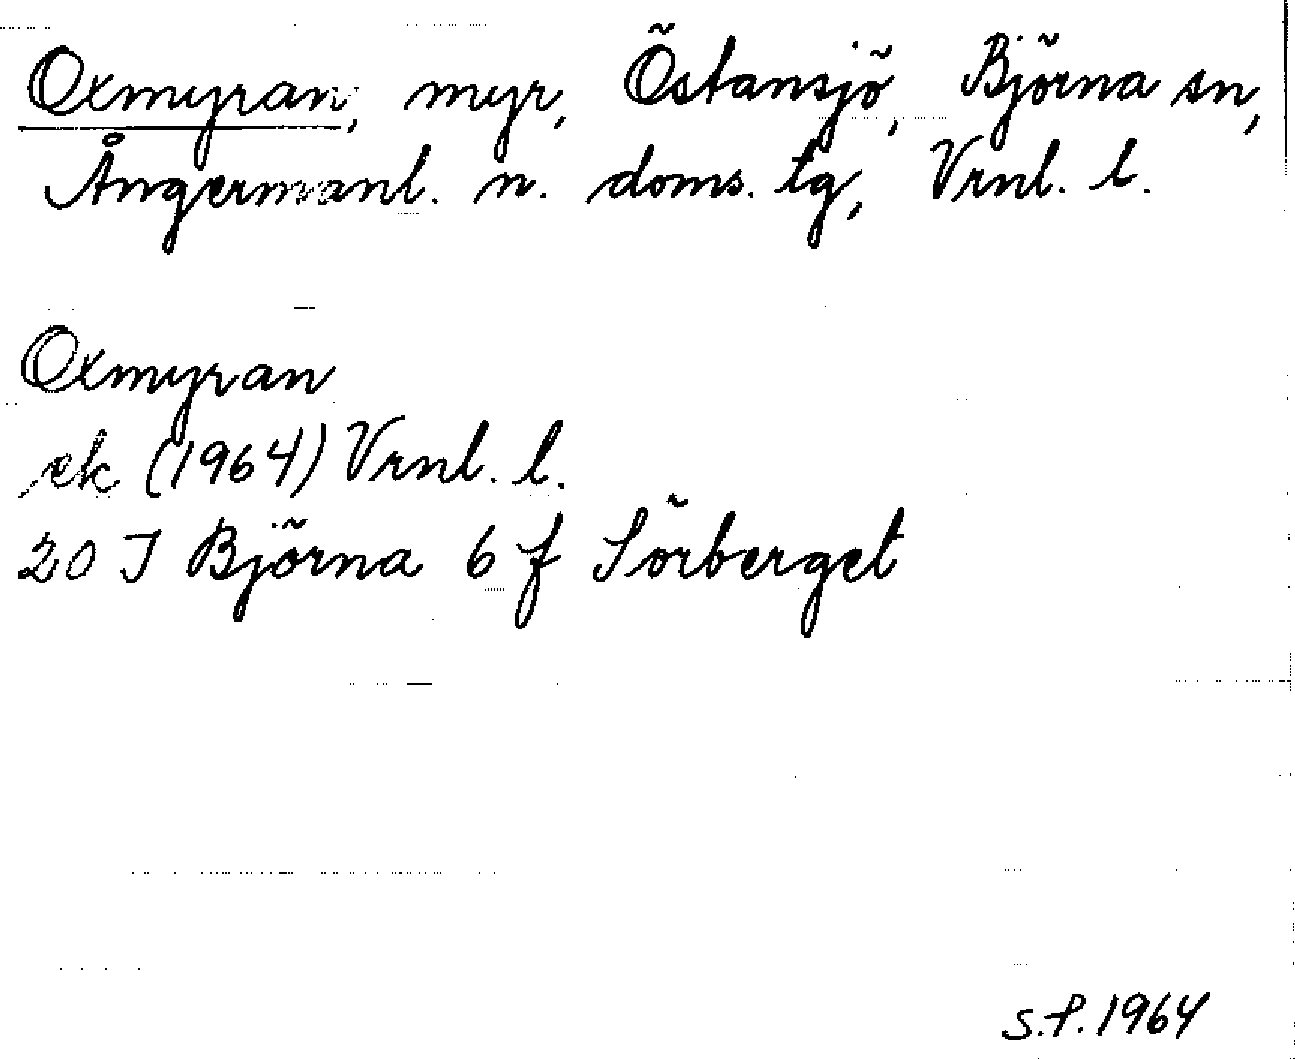 Oxmyran, myr, Östansjö, Björna sn,
Ångermanl. n. doms. tg, Vrnl. l.
Oxmyran
ek (1964) Vrnl. l.
20 I Björna 6 f Sörberget
S.P. 1964